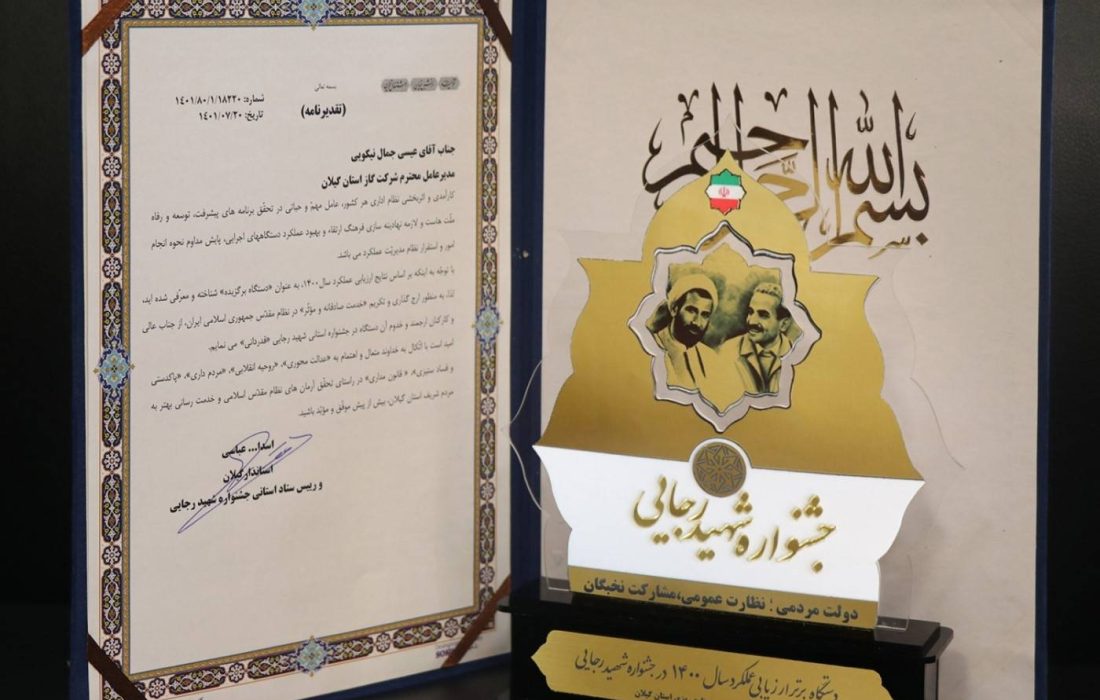 بسمه تعالی
شماره: ۱٤۰۱/۸۰/۱/۱۸۲۲۰
تاریخ: ۱٤۰۱/۰۷/۲۰
(تقدیرنامه)
جناب آقای عیسی جمال نیکویی
مدیرعامل محترم شرکت گاز استان گیلان
کارآمدی و اثربخشی نظام اداری هر کشور، عامل مهمّ و حیاتی در تحقّق برنامه های پیشرفت، توسعه و رفاه
ملّت هاست و لازمه نهادینه سازی فرهنگ ارتقاء و بهبود عملکرد دستگاههای اجرایی، پایش مداوم نحوه انجام
امور و استقرار نظام مدیریّت عملکرد می باشد.
با توجّه به اینکه بر اساس نتایج ارزیابی عملکرد سال۱٤۰۰، به عنوان «دستگاه برگزیده» شناخته و معرّفی شده اید،
لذا، به منظور ارج گذاری و تکریم «خدمت صادقانه و مؤثّر» در نظام مقدّس جمهوری اسلامی ایران، از جناب عالی
و کارکنان ارجمند و خدوم آن دستگاه در جشنواره استانی شهید رجایی «قدردانی» می نمایم.
امید است با اتّکال به خداوند متعال و اهتمام به «عدالت محوری»، «روحیه انقلابی»، «مردم داری»، «پاکدستی
و فساد ستیزی»، « قانون مداری» در راستای تحقّق آرمان های نظام مقدّس اسلامی و خدمت رسانی بهتر به
مردم شریف استان گیلان، بیش از پیش موفّق و مؤیّد باشید.
اسدا... عباسی
استاندار گیلان
و رییس ستاد استانی جشنواره شهید رجایی
بسم الله الرحمن الرحیم
جشنواره شهید رجایی
دولت مردمی ؛ نظارت عمومی،مشارکت نخبگان
دستگاه برتر ارزیابی عملکرد سال ۱۴۰۰ در جشنواره شهید رجایی
استان گیلان